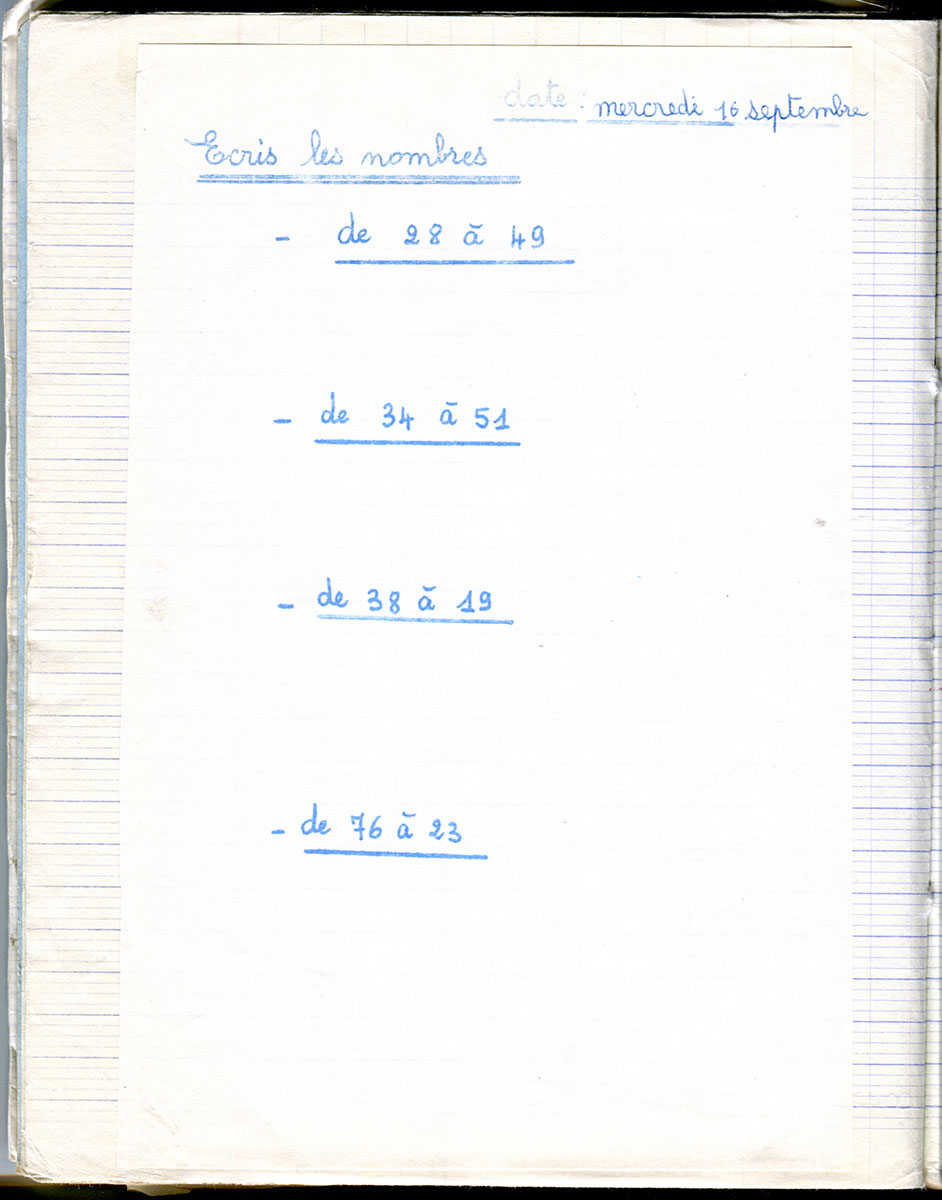 date : mercredi 16 septembre
Ecris les nombres
- de 28 à 49
- de 34 à 51
- de 38 à 19
- de 76 à 23